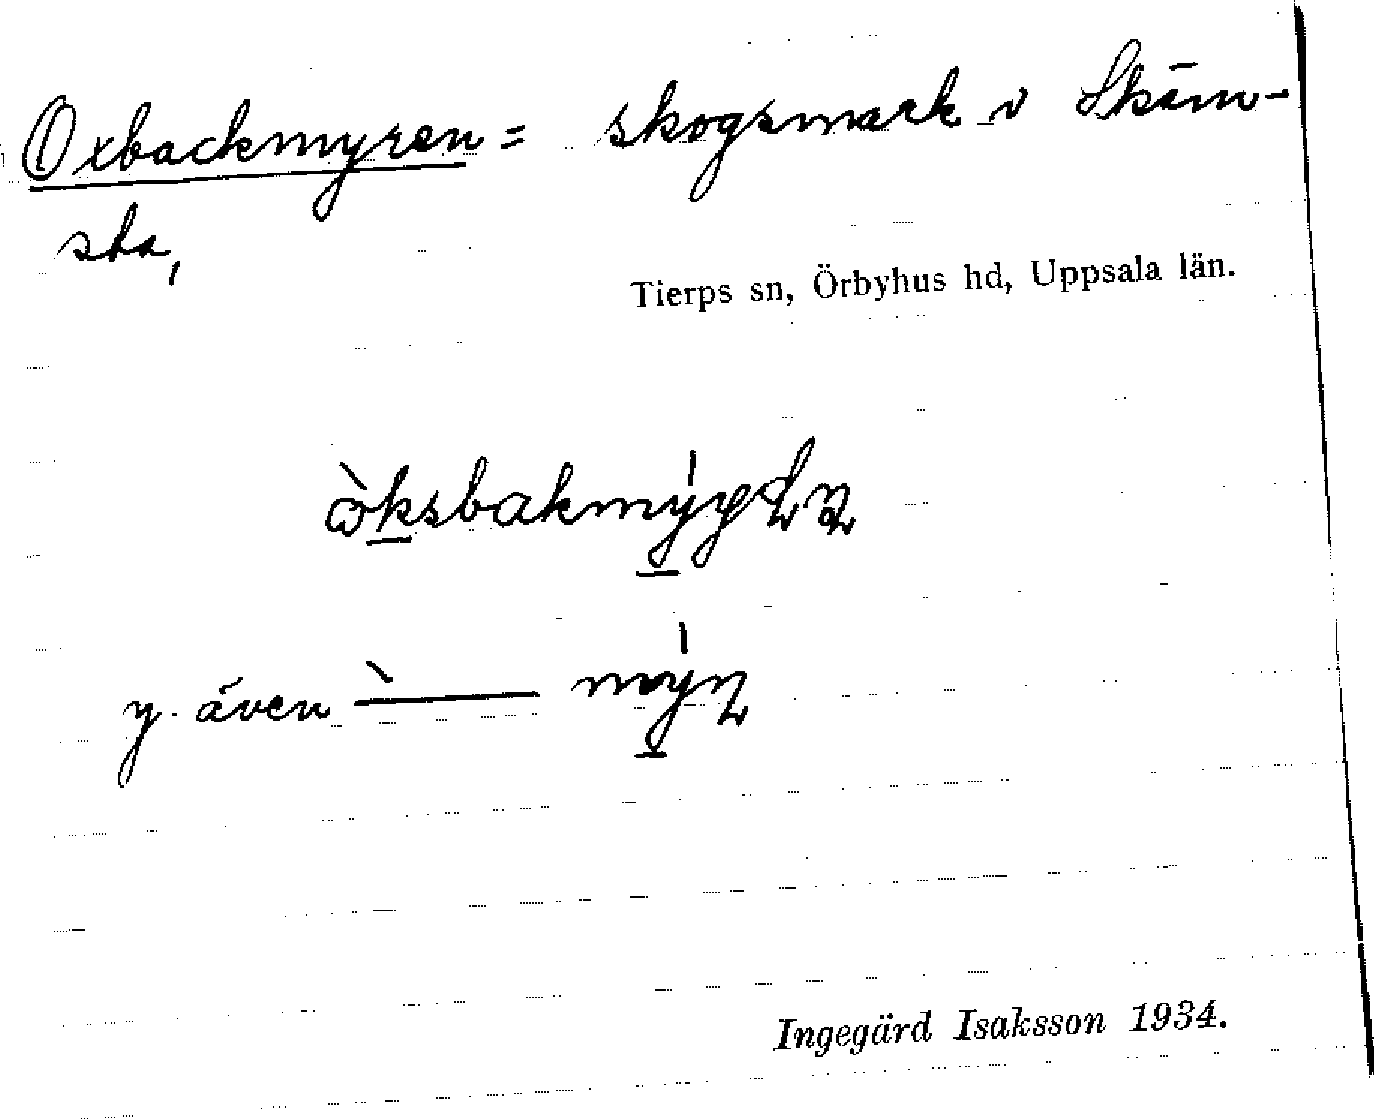 Oxbackmyren = skogsmark v Skäm-
sta,
Tierps sn, Örbyhus hd, Uppsala län.
y. även
Ingegärd Isaksson 1934.